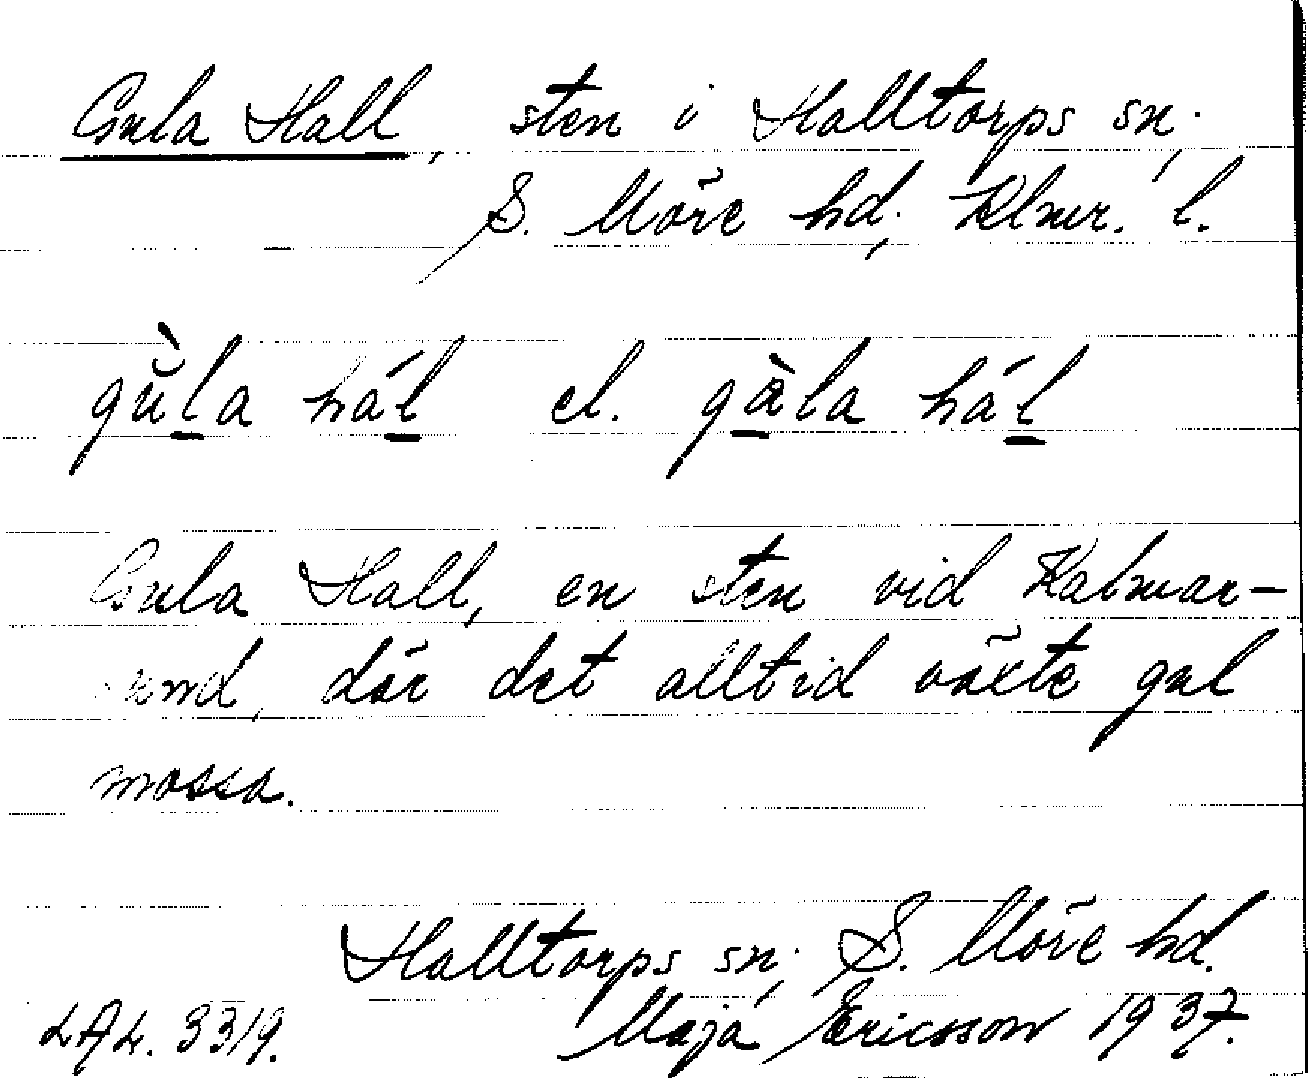 Gula Hall, sten i Halltorps sn.,
S. Möre hd., Klmr. l.
gùla hál el. gàla hál
Gula Hall, en sten vid Kalmar-
sund, där det alltid växte gul
mossa.
Halltorps sn., S. Möre hd.
LAL. 3319. Maja Ericsson 1937.